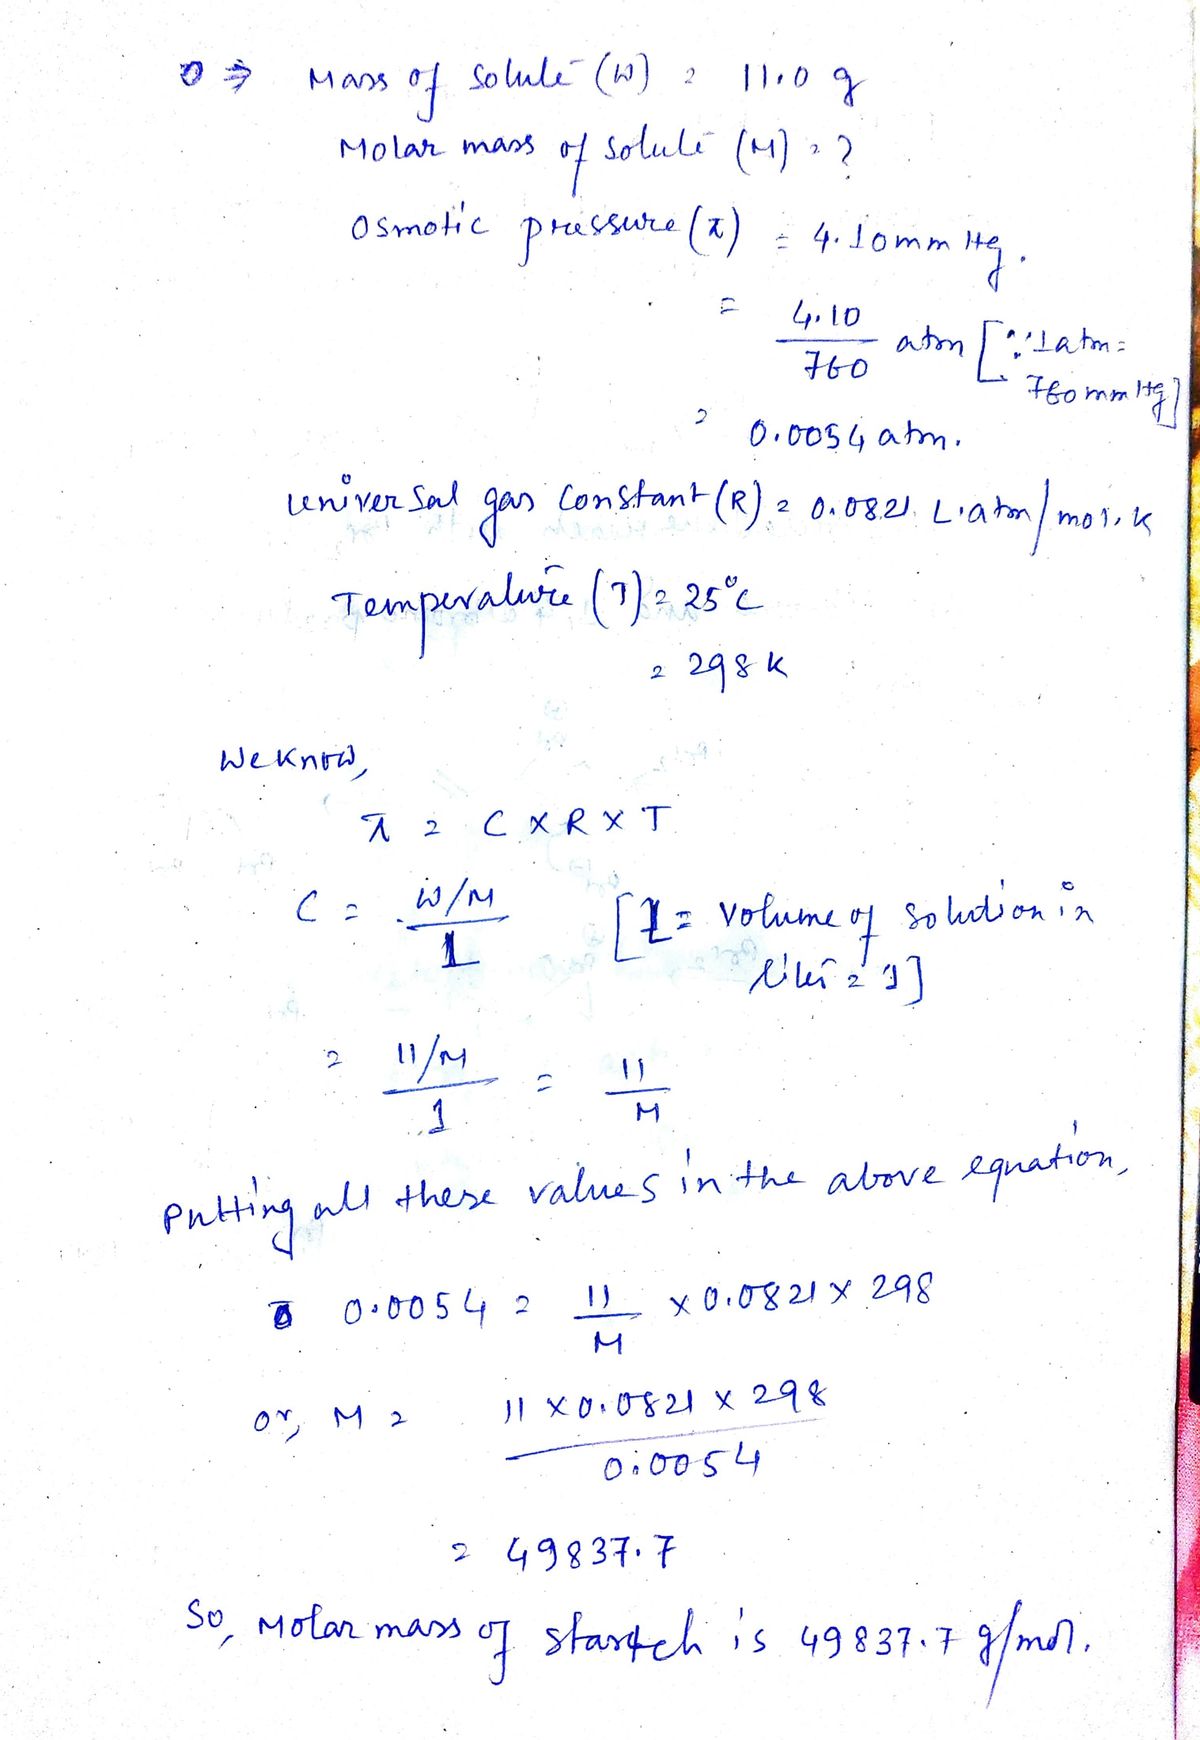 ⇒ Mass of solute (W) = 11.0 g
Molar mass of solute (M) = ?
Osmotic pressure (π) = 4.10mm Hg.
= 4.10/760 atm [∵ 1atm = 760 mm Hg]
= 0.0054 atm.
universal gas constant (R) = 0.0821 L.atm/mol.k
Temperature (T) = 25°C
= 298 K
We know,
π = C X R X T
C = W/M / 1 [1 = volume of solution in
liter = 1]
= 11/M / 1 = 11/M
putting all these values in the above equation,
0.0054 = 11/M x 0.0821 x 298
or, M = 11 x 0.0821 x 298 / 0.0054
= 49837.7
So, Molar mass of starch is 49837.7 g/mol.